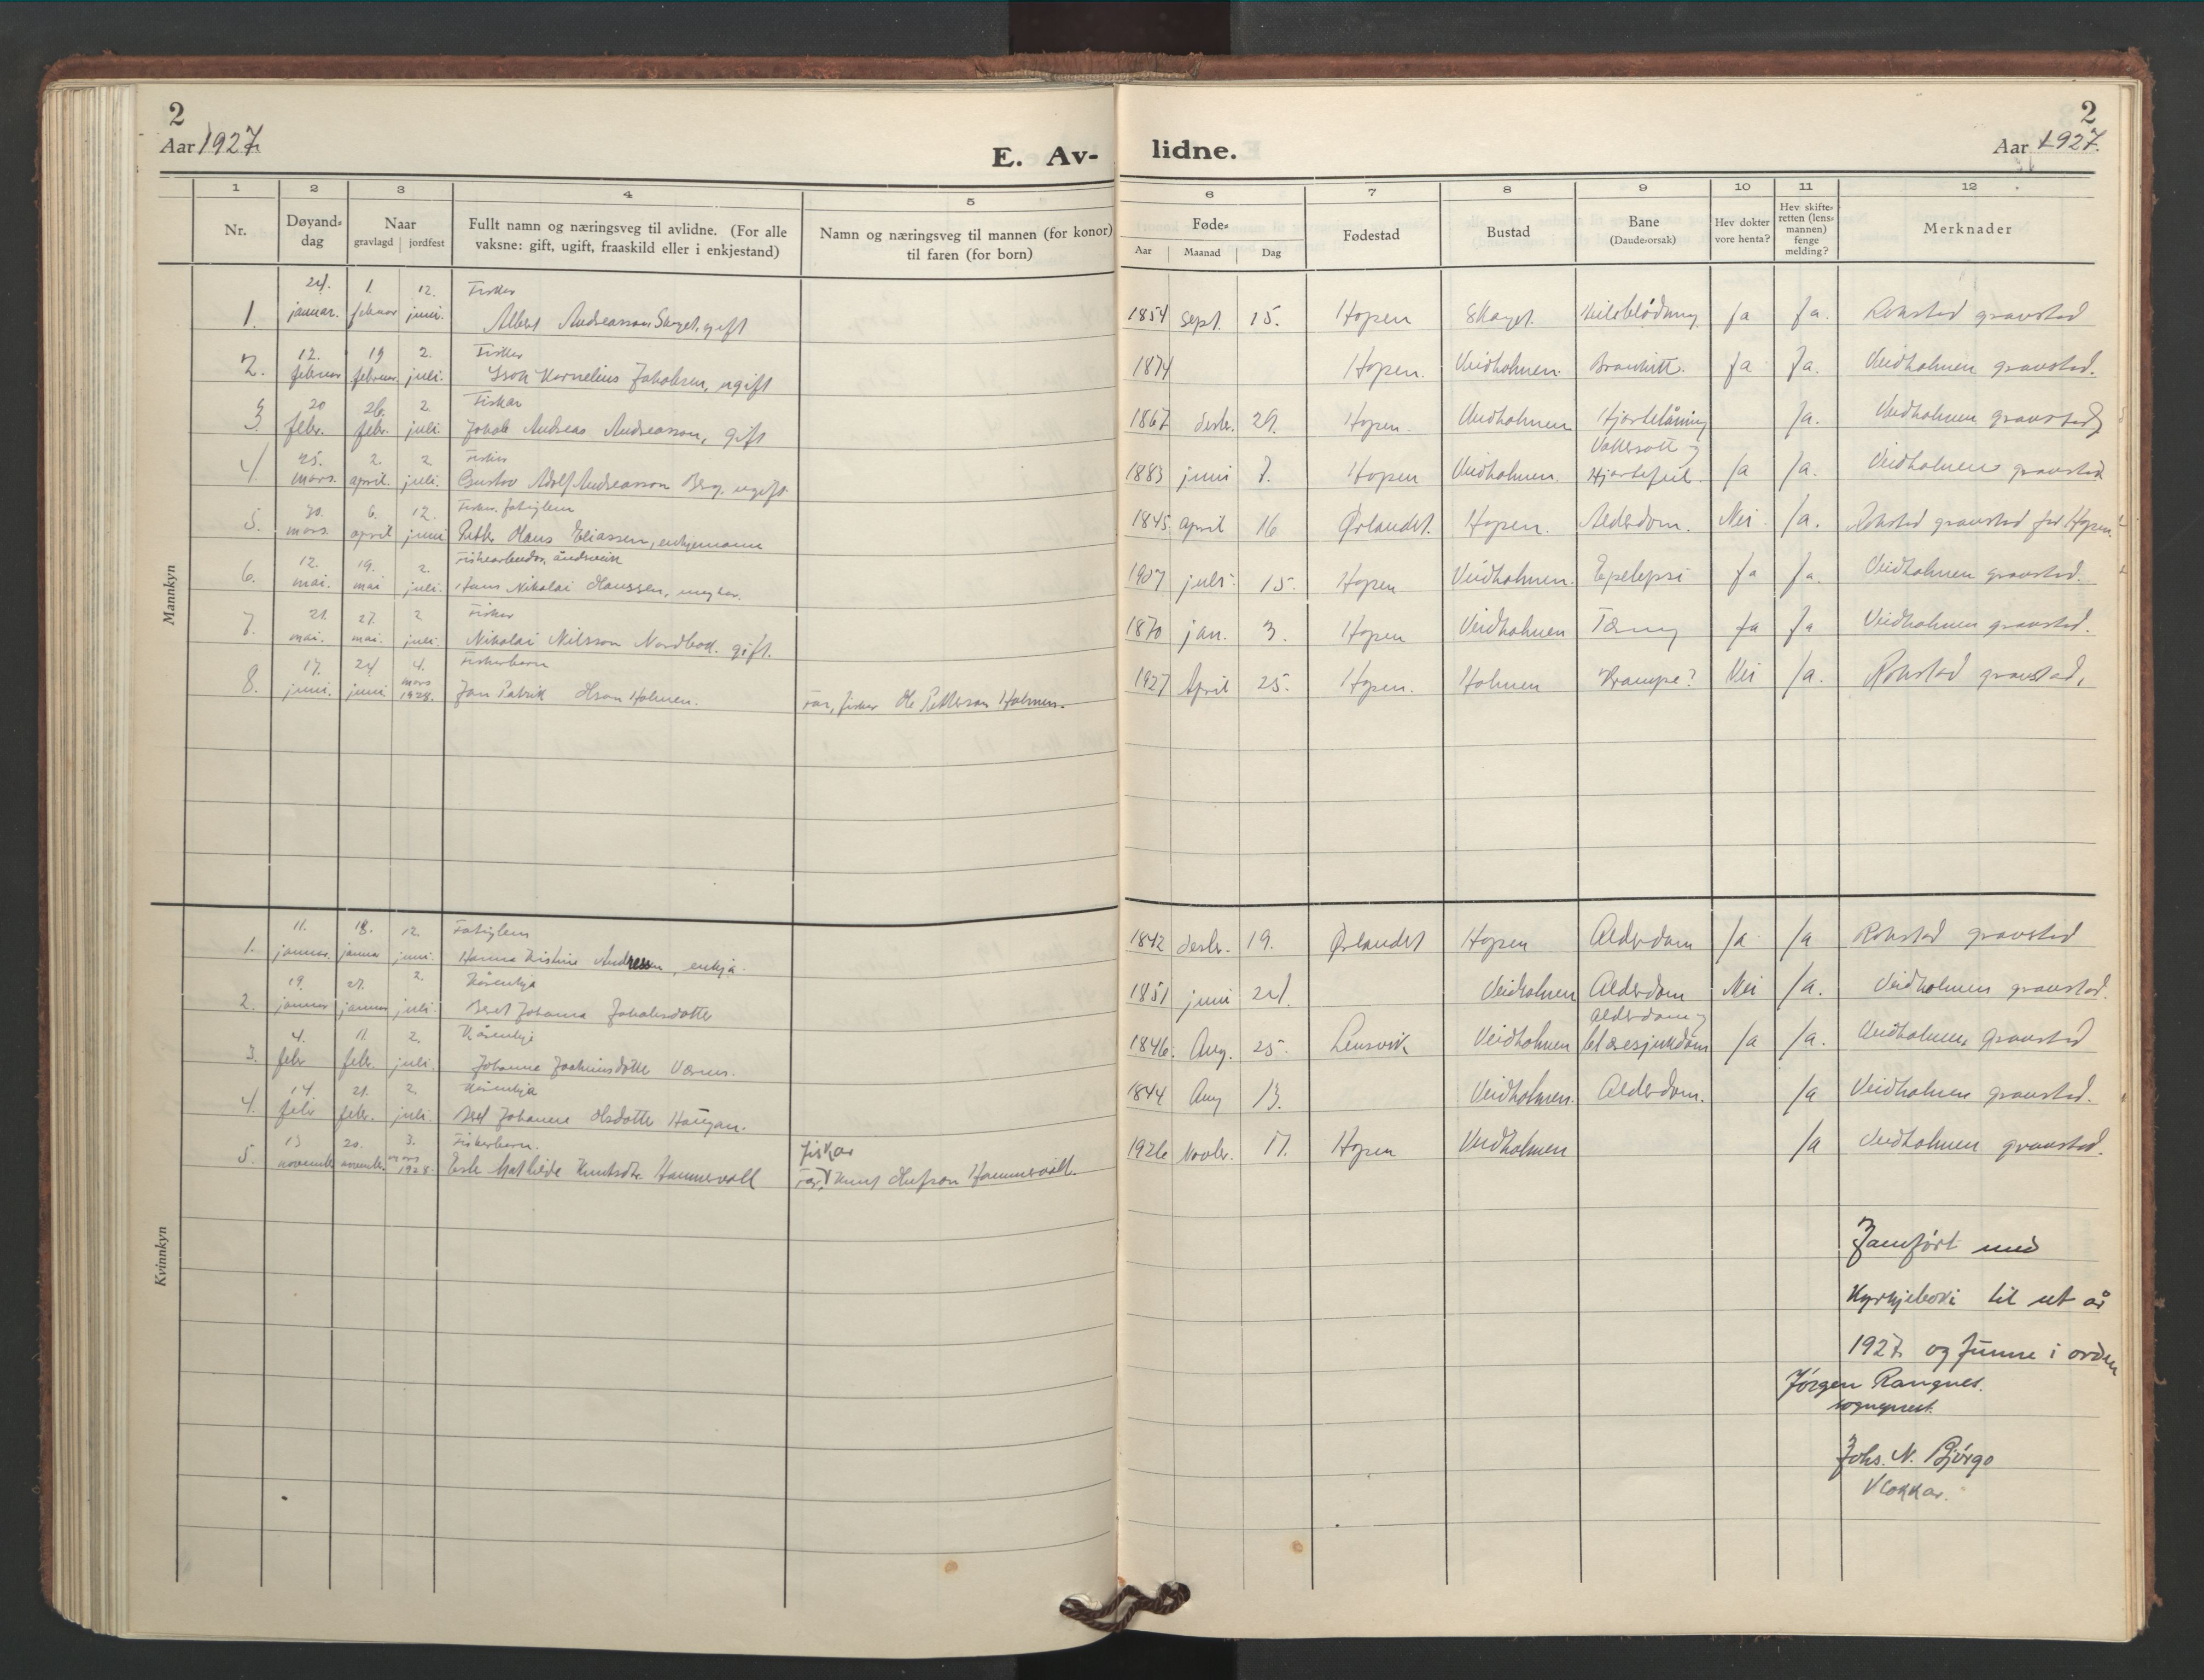 2
Aar 1927.
E. Av-
lidne.
2
Aar 1927.
1 2 3 4 5 6 7 8 9 10 11 12
Nr.
Døyand-
dag
Naar
gravlagd jordfest
Fullt namn og næringsveg til avlidne. (For alle
vaksne: gift, ugift, fraaskild eller i enkjestand)
Namn og næringsveg til mannen (for konor)
til faren (for born)
Føde-
Aar Maanad Dag
Fødestad
Bustad
Bane
(Daude-orsak)
Hev dokter
vore henta?
Hev skifte-
retten (lens-
mannen)
fenge
melding?
Merknader
Mannkyn
24. 1. 12. Fisker
1. januar. februar juni. Albert Andreasson Skaget, gift 1854 sept. 15. Hopen Skaget. Ja Ja. Rokstad gravstad
12. 19 2. Fisker
2. februar februar juli. Isak Kornelius Jakobsen, ugift 1874 Hopen. Veidholmen. Ja Ja. Veidholmen gravstad.
20 26. 2. Fiskar
3. febr. febr. juli. Jakob Andreas Andreasson, gift 1867 desbr. 29. Hopen. Veidholmen Hjartelåming Ja. Veidholmen gravstad
25. 2. 2 Fisker Vattersott og
4. mars. april. juli. Gustav Adolf Andreasson Berg, ugift. 1883 juni 7. Hopen Veidholmen. Hjartefeil. Ja Ja. Veidholmen gravstad
30. 6. 12. Fisker, fatiglem
5. mars. april juni Petter Hans Eliassen, enkjemann 1845. april 16 Ørlandet. Hopen. Alderdom. Nei. Ja. Rokstad gravstad for Hopen.
12. 19. 2. Fiskearbeidar, åndsveik
6. mai. mai juli. Hans Nikolai Hanssen, ungkar. 1907 juli. 15. Hopen Veidholmen. Epelepsi Ja Ja. Veidholmen gravstad.
21. 27. 2 Fisker
7. mai. mai. juli. Nikolai Nilsson Nordbak. gift. 1870 jan. 3. Hopen Veidholmen Tæring Ja Ja Veidholmen gravstad.
17. 24 4. Fiskerbarn
8. juni. juni mars 1928. Jan Patrik Olson Holmen. Far, fisker Ole Petterson Holmen. 1927 April 25. Hopen. Holmen Krampe? Nei Ja. Rokstad gravstad.
Kvinnkyn
11. 18. 12. Fatiglem
1. januar. januar juni. Hanna Kristine Andressen, enkja. 1842 desbr. 19. Ørlandet Hopen Alderdom Ja Ja Rokstad gravstad
19. 27. 2. Kårenkja
2. januar januar juli. Beret Johanna Jakobsdotter 1851 juni 24. Veidholmen Alderdom Nei Ja. Veidholmen gravstad.
4. 11. 2. Kårenkje Alderdom og
3. febr febr. juli. Johanna Joakimsdotter Værnes. 1846. Aug. 25. Lensvik Veidholmen blæresjukdom Ja Ja. Veidholmen gravstad
14 21. 2. Kårenkja
4. febr febr. juli. Beret Johanna Olsdotter Haugan. 1844 Aug 13. Veidholmen. Alderdom. Ja Veidholmen gravstad.
13 20. 3. Fiskerbarn. Fiskar
5. november november. mars 1928. Mathilde Knutsdtr. Hammervoll Far, Knut Olufson Hammervoll. 1926 Novbr. 17. Hopen Veidholmen Ja Veidholmen gravstad.
Jamført med
Kyrkjeboki til ut år
1927. og funne i orden
Jørgen Rangnes.
sogneprest.
Johs. N. Bjørgo
Klokkar.